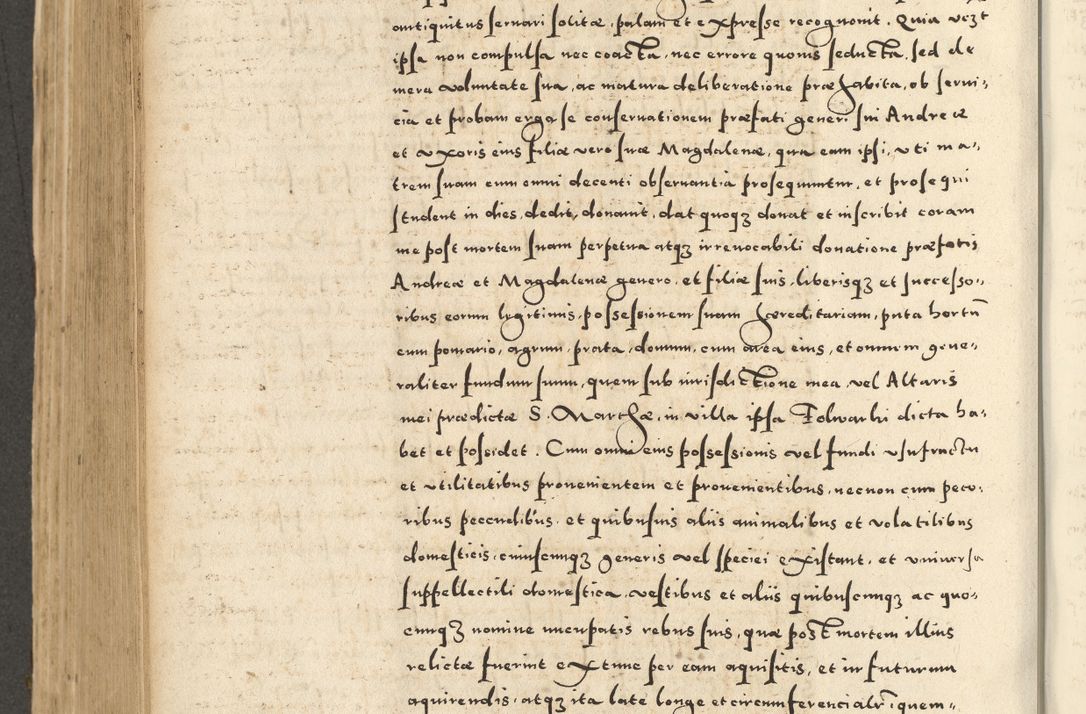 antiquitus seruari solitæ, palam et expresse recognouit. Quia vezt
ipsa non compulsa nec coacta, nec errore quouis seducta, sed de
mera voluntate sua, ac matura deliberatione præhabita, ob serui-
cia et probam erga se conseruationem præfati generi sui Andreæ
et uxoris eius filiæ vero suæ Magdalenæ, qua eam ipsi, uti ma-
trem suam cum omni decenti obseruantia prosequuntur, et prosequi
student in dies, dedit, donauit, dat quoqȝ donat et inscribit coram
me post mortem suam perpetua atqȝ irreuocabili donatione præfatis
Andreæ et Magdalenæ genero, et filiæ suis, liberisqȝ et successo-
ribus eorum lygitimis, possessionem suam hæreditariam, puta hortū
cum pomario, agrum, prata, domum, cum area eius, et omnem gene-
raliter fundum suum, quem sub iurisdictione mea vel Altaris
mei prædictæ S. Marthæ, in villa ipsa Folwarki dicta ha-
bet et possidet. Cum omni eius possessionis vel fundi usufructu
et utilitatibus prouenientem et prouenientibus, necnon cum peco-
ribus peccudibus, et quibusuis aliis animalibus et volatilibus
domesticis, cuiuscunqȝ generis vel speciei existant, et uniuersa
suppellectili domestica, vestibus et aliis quibuscunqȝ ac quo-
cunqȝ nomine nuncupatis rebus suis, quæ post mortem illius
relictæ fuerint ex tunc per eam aquisitis, et in futurum
aquirendis, atqȝ ita late longe et circumferencialr̄ quem-